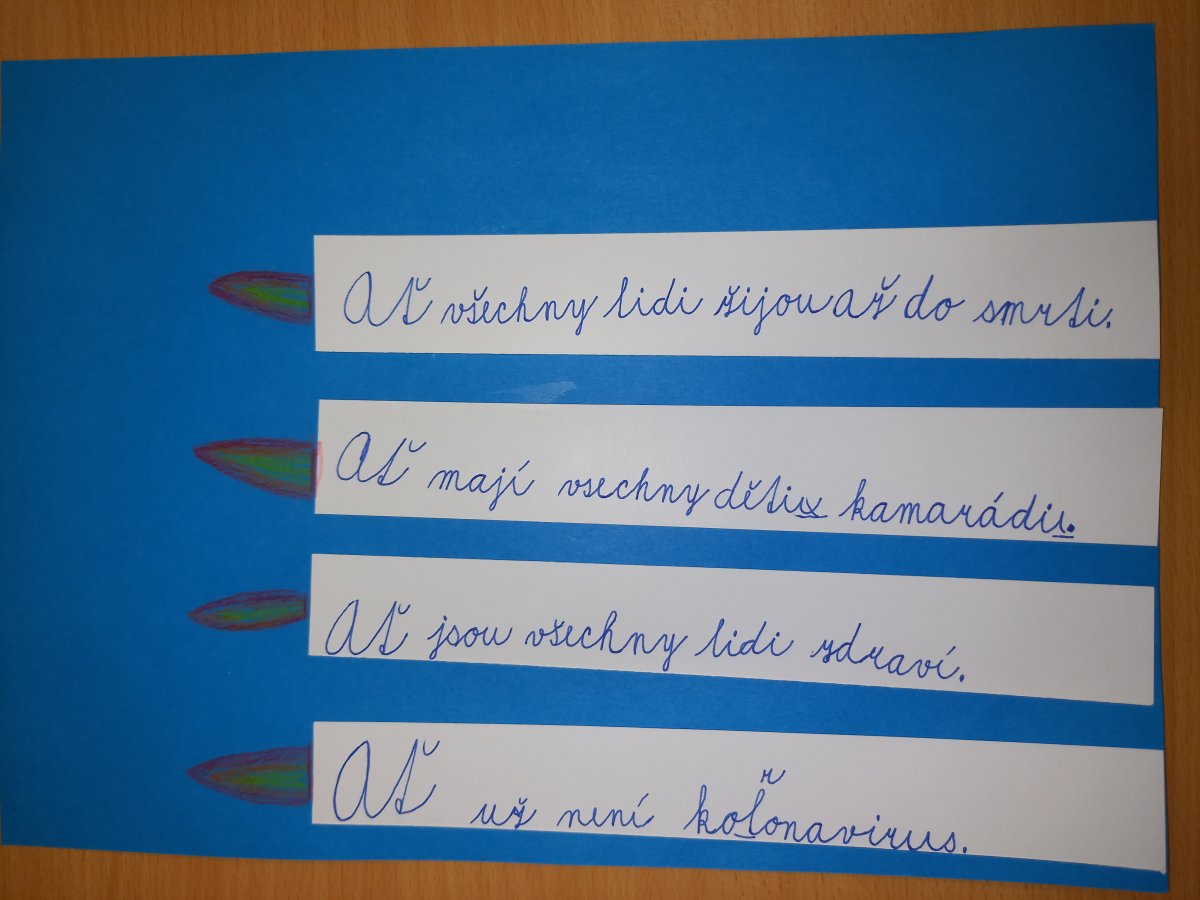 Ať všechny lidi žijou až do smrti.
Ať mají vsechny dětix kamarádiu.
Ať jsou všechny lidi zdraví.
r
Ať už není kolonavirus.